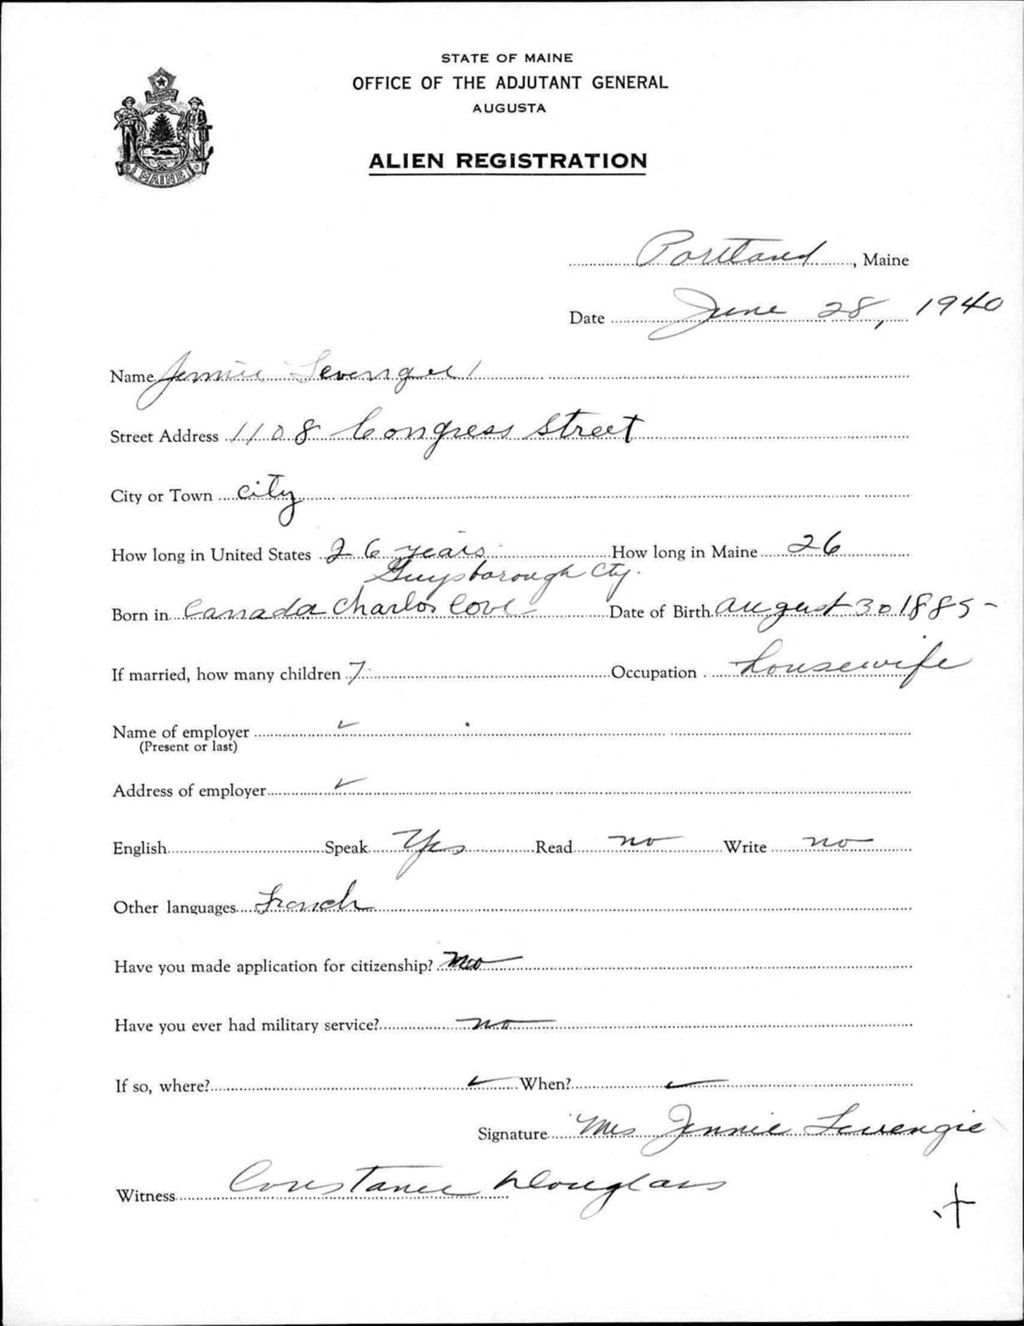 STATE OF MAINE
OFFICE OF THE ADJUTANT GENERAL
AUGUSTA
MAINE
ALIEN REGISTRATION
Portland, Maine
Date June 28, 1940
Name Jennie
Street Address 1108 Congress Street
City or Town city
How long in United States 26 years How long in Maine 26
Guysborough Cty.
Born in Canada Charlos Cove Date of Birth August 30 1885
If married, how many children 7 Occupation housewife
Name of employer
(Present or last)
Address of employer
English Speak Yes Read no Write no
Other languages French
Have you made application for citizenship? No
Have you ever had military service? no
If so, where? When?
Signature Mrs Jennie Levengie
Witness Constance Douglass